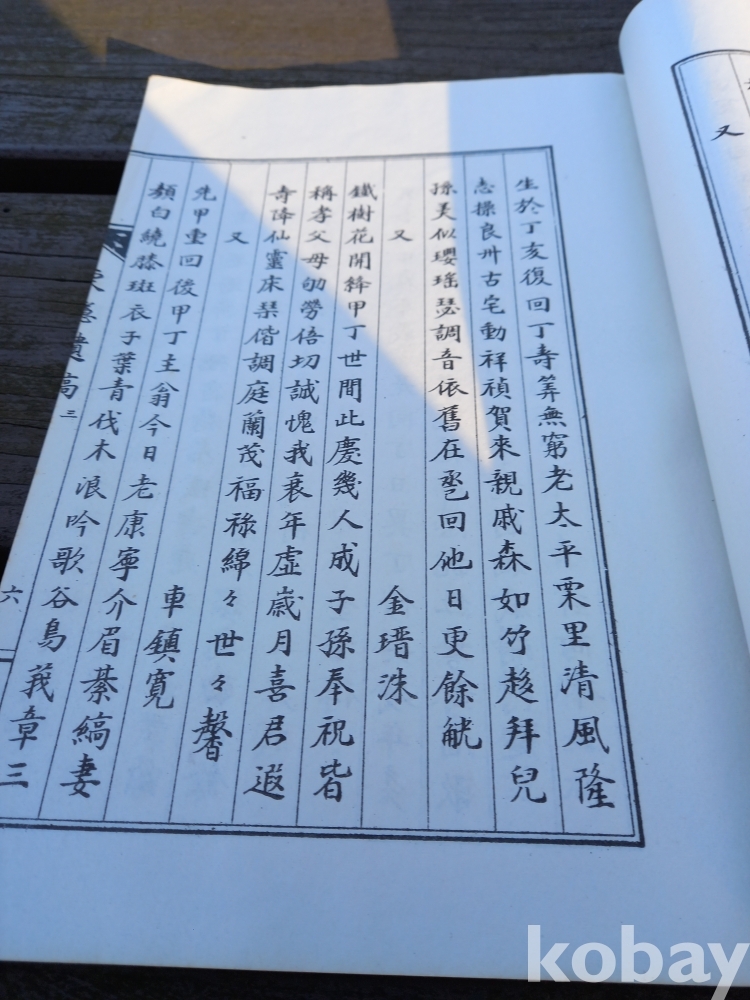 又
生於丁亥復回丁壽筭無窮老太平栗里清風隆
志操良卅古宅動祥禎賀來親戚森如竹趍拜兒
孫美似瓔瑶瑟調音依舊在卺回他日更餘觥
又 金瑨洙
鐵樹花開絳甲丁世間此慶幾人成子孫奉祝皆
稱孝父母劬勞倍切誠愧我衰年虛歲月喜君遐
壽降仙靈床琹偕調庭蘭茂福祿綿々世々馨
又 車鎮寬
先甲重回後甲丁主翁今日老康寧介眉綦縞妻
頖白繞膝斑衣子葉青伐木浪吟歌谷鳥莪章三
隱遺稿 三 六
kobay